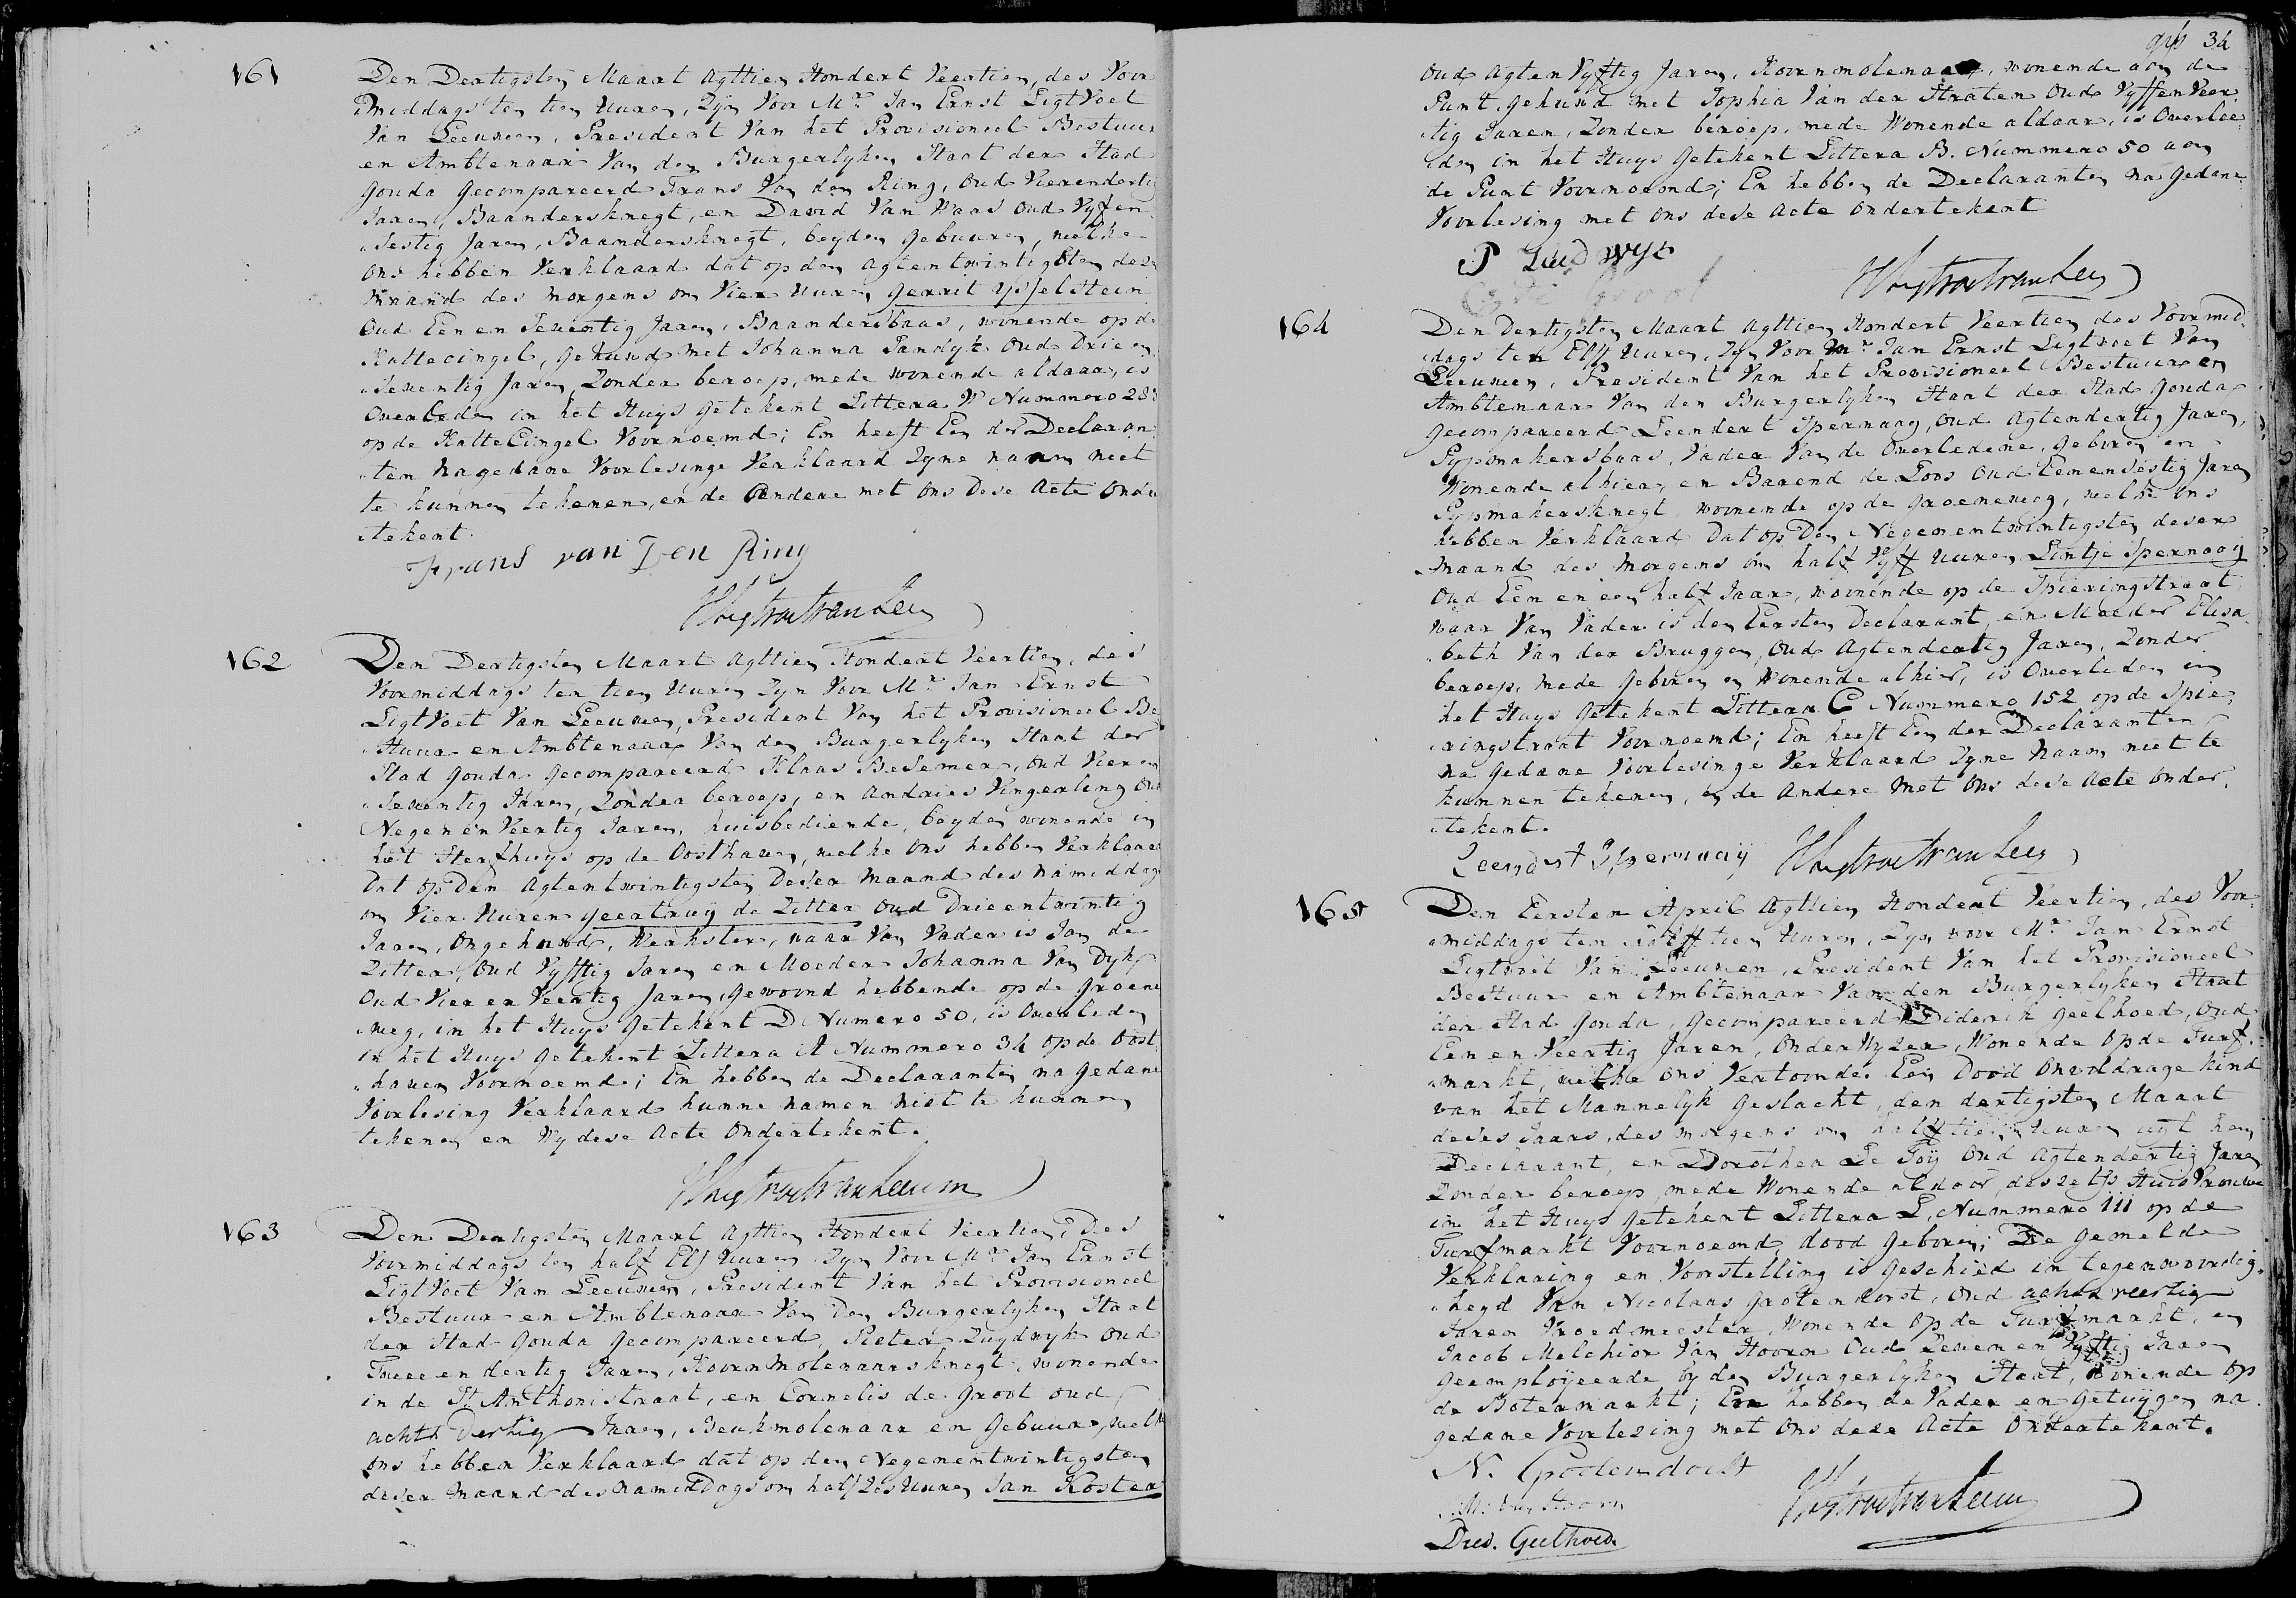 161
Den Dertigsten Maart Agttien Hondert Veertien, des Voor
middags ten tien Uuren, Zyn Voor Mr. Jan Ernst Ligtvoet
Van Leeuwen, President Van het Provisioneel Bestuur
en Ambtenaar Van den Burgerlyken Staat der Stad
Gouda Gecompareerd Frans Van den Ring, Oud Vierendertig
Jaren, Baandersknegt, en David Van Waas oud Vyfen
Sestig Jaren, Baandersknegt, beyden Gebuuren, welke
Ons hebben Verklaard dat op den Agtentwintigsten deser
Maand des morgens om Vier Uuren Gerrit Ysselstein
Oud Een en Seventig Jaren, Baandersbaas, wonende op de
Kattecingel, Gehuwd met Johanna Tandyk Oud Drieen
Seventig Jaren, Zonder beroep, mede wonende aldaar, is
Overleden in het Huys Getekent Littera W Nummero 283
op de KatteCingel Voornoemd; En heeft Een der Declaran
ten Na gedane Voorlesinge Verklaard Zyne naam niet
te kunnen tekenen, en de Andere met Ons Dese Acte Onder
tekent.
Frans van Den Ring
162
Den Dertigsten Maart Agttien Hondert Veertien, des
Voormiddags ten tien Uuren Zyn Voor Mr. Jan Ernst
Ligtvoet Van Leeuwen, President Van het Provisioneel Be
stuur en Ambtenaar Van den Burgerlyken Staat der
Stad Gouda Gecompareerd Klaas Besemer, Oud Vier en
Seventig Jaren, Zonder beroep, en Andries Vingerling Oud
Negen en Veertig Jaren, huisbediende, beyden wonende in
het Sterfhuys op de Oosthaven, welke Ons hebben Verklaard
Dat op Den Agtentwintigsten Deser Maand des Namiddags
om Vier Uuren Geertruy de Zitter Oud Drieentwintig
Jaren, Ongehuwd, Werkster, waar Van Vader is Jan de
Zitter, Oud Vyfftig Jaren en Moeder Johanna Van Dyk,
Oud Vier en Veertig Jaren, Gewoond hebbende op de Groene
weg, in het Huys Getekent D Numero 50, is Overleden
in het Huys Getekent Littera A Nummero 34 op de Oost
haven Voornoemd; En hebben de Declaranten na gedane
Voorlesing Verklaard hunne namen niet te kunnen
tekenen en Wy dese Acte Ondertekent.
163
Den Dertigsten Maart Agttien Hondert Veertien, Des
Voormiddags ten half Elf Uuren Zyn Voor Mr. Jan Ernst
Ligtvoet Van Leeuwen, President Van het Provisioneel
Bestuur en Ambtenaar Van Den Burgerlyken Staat
der Stad Gouda Gecompareerd, Pieter Zuydwyk Oud
Twee en dertig Jaren, Koornmolenaarsknegt, wonende
in de St. Anthonistraat, en Cornelis de Groot oud
acht & Dertig Jaren, Beukmolenaar en Gebuur, welke
Ons hebben Verklaard dat op den Negenentwintigsten
deser Maand des Namiddags om half Zes Uuren Jan Koster
34
Oud Agten Vyftig Jaren, Koornmolenaar, wonende aan de
Punt, Gehuwd met Sophia Van der Straten Oud Vyffen Veer
tig Jaren, Zonder beroep, mede Wonende aldaar, is Overlee
den in het Huys Getekent Littera B. Nummero 50 aan
de Punt Voornoemd; En hebben de Declaranten Na Gedane
Voorlesing met Ons dese Acte Ondertekent
P Zuid wyk
C de Groot
164
Den Dertigsten Maart Agttien Hondert Veertien des Voormid
dags ten Elff Uuren, Zyn Voor Mr. Jan Ernst Ligtvoet Van
Leeuwen, President Van het Provisioneel Bestuur en
Ambtenaar Van den Burgerlyken Staat der Stad Gouda
Gecompareerd Leendert Spernaay, Oud Agtendertig Jaren,
Pypmakersbaas, Vader Van de Overledene, Geboren en
Wonende alhier, en Barend de Loos Oud Eenensestig Jaren
Pypmakersknegt, wonende op de Groeneweg, welke Ons
hebben Verklaard Dat op Den Negenentwintigsten deser
Maand des Morgens om half Vyff Uuren Lintje Spernaaij
Oud Een en een half Jaar, wonende op de Spieringstraat
waar Van Vader is den Eersten Declarant, en Moeder Elisa
beth Van der Bruggen, Oud Agtendertig Jaren, Zonder
beroep, mede Geboren en Wonende alhier, is Overleden in
het Huys Getekent Littera C Nummero 152 op de Spie
ringstraat Voornoemd; En heeft Een der Declaranten
Na Gedane Voorlesinge Verklaard Zyne Naam niet te
kunnen tekenen, en de Andere Met Ons dese Acte Onder
tekent.
Leendert Spernaaij
165
Den Eersten April Agttien Hondert Veertien, des Voor
middags ten halff tien Uuren, Zyn voor Mr. Jan Ernst
Ligtvoet Van Leeuwen, President Van het Provisioneel
Bestuur en Ambtenaar Van den Burgerlyken Staat
der Stad Gouda, Gecompareerd Diderik Geelhoed, Oud
Een en Veertig Jaren, OnderWyzer, Wonende op de Turf
markt, welke Ons Vertoonde Een Dood Onvoldrage Kind
van het Mannelyk Geslacht, den dertigsten Maart
deses Jaars, des morgens om halff tien Uuren uyt hem
Declarant, en Dorothea Le Foy Oud Agtendertig Jaren
Zonder beroep mede Wonende aldaar, deszelfs HuisVrouwe
in het Huys Getekent Littera L, Nummero 111 op de
Turfmarkt Voornoemd, dood Geboren; De Gemelde
Verklaring en Voorstelling is Geschied in tegenwoordig
heyd Van Nicolaas Grotendorst, Oud acht & veertig
Jaren Vroedmeester, Wonende op de Turfmarkt, en
Jacob Melchior Van Hoorn Oud Zeven en Vyftig Jaren
Geemployeerde by den Burgerlyken Staat, Wonende op
de Botermarkt; En hebben de Vader en Getuygen na
gedane Voorlezing met Ons deze Acte Ondertekent.
N. Grotendorst
J.M. van Hoorn
Died. Geelhoed.